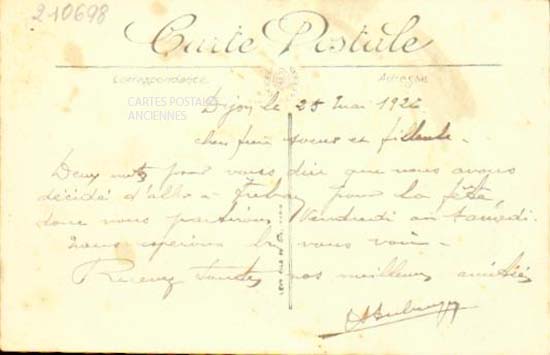 210698
Carte Postale
Correspondance
Adresse
CARTES POSTALES
ANCIENNES
Dijon le 25 mai 1926
cher frère soeur et filleule.
Deux mots pour vous dire que nous avons
décidé d'aller à pour la fête,
donc nous partirons Vendredi ou Samedi.
Nous espérons vous voir.
Recevez toutes nos meilleures amitiés